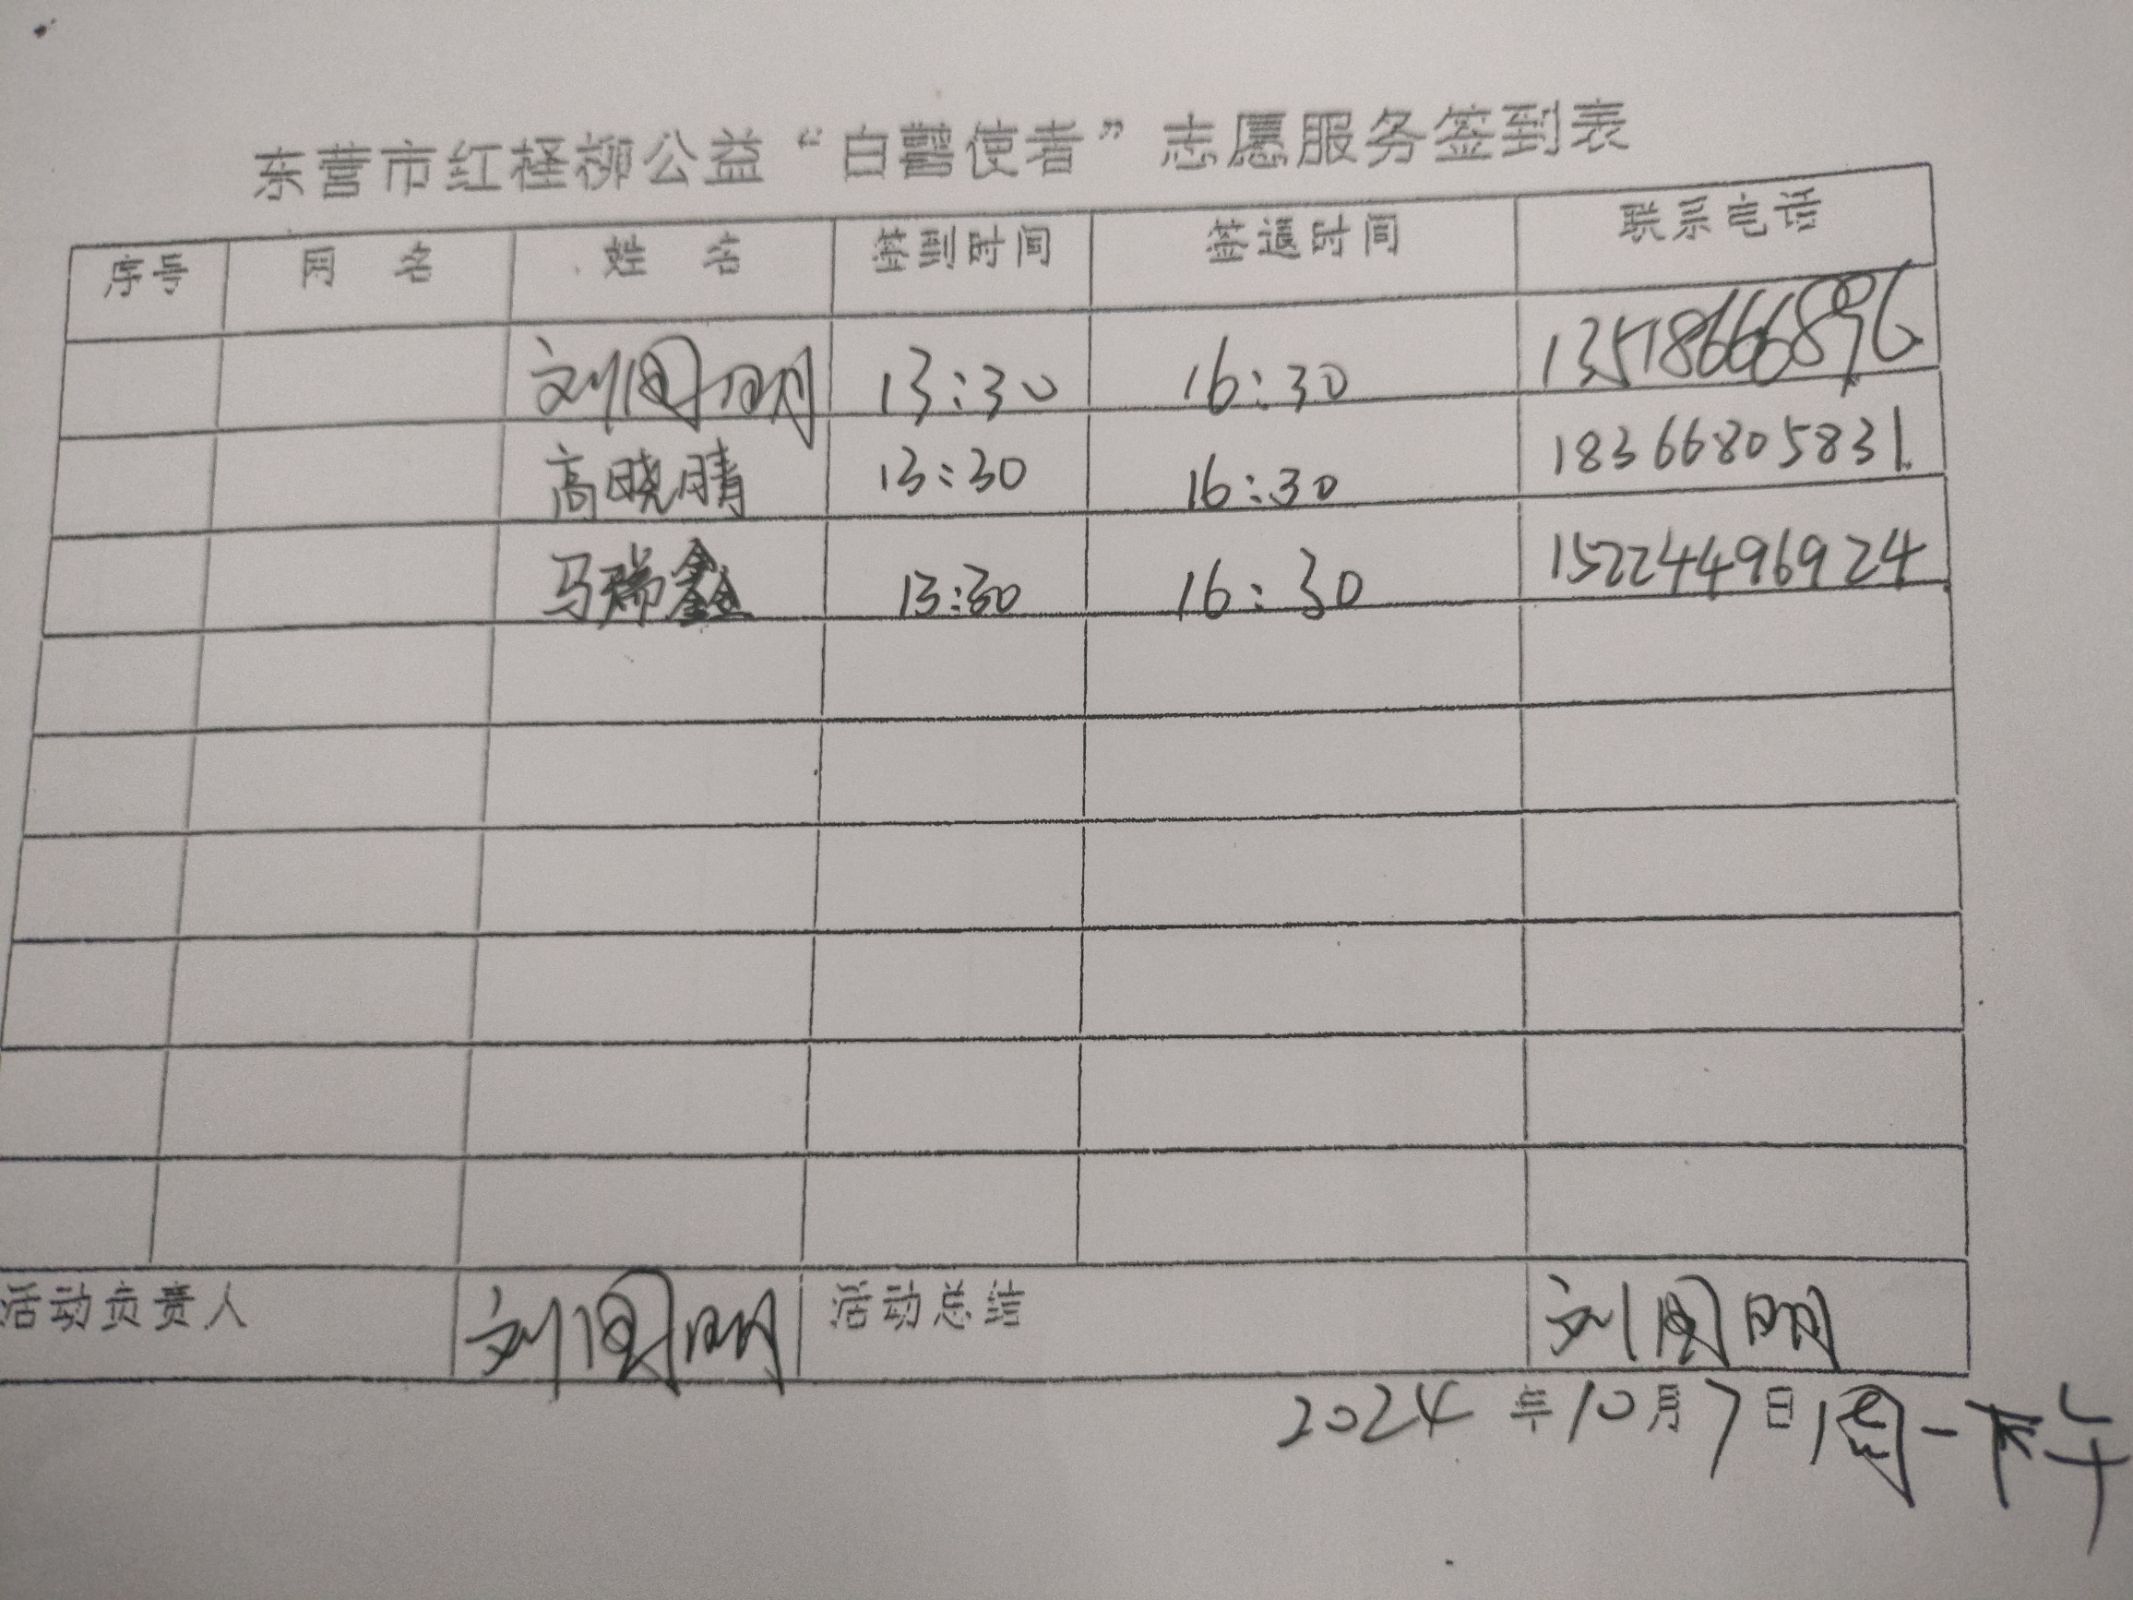 东营市红柽柳公益“白鹭使者”志愿服务签到表
序号 网 名 姓 名 签到时间 签退时间 联系电话
刘国明 13:30 16:30 13518666896
高晓晴 13:30 16:30 18366805831
马瑞鑫 13:30 16:30 15224496924
活动负责人 刘国明 活动总结 刘国明
2024年10月7日周一下午